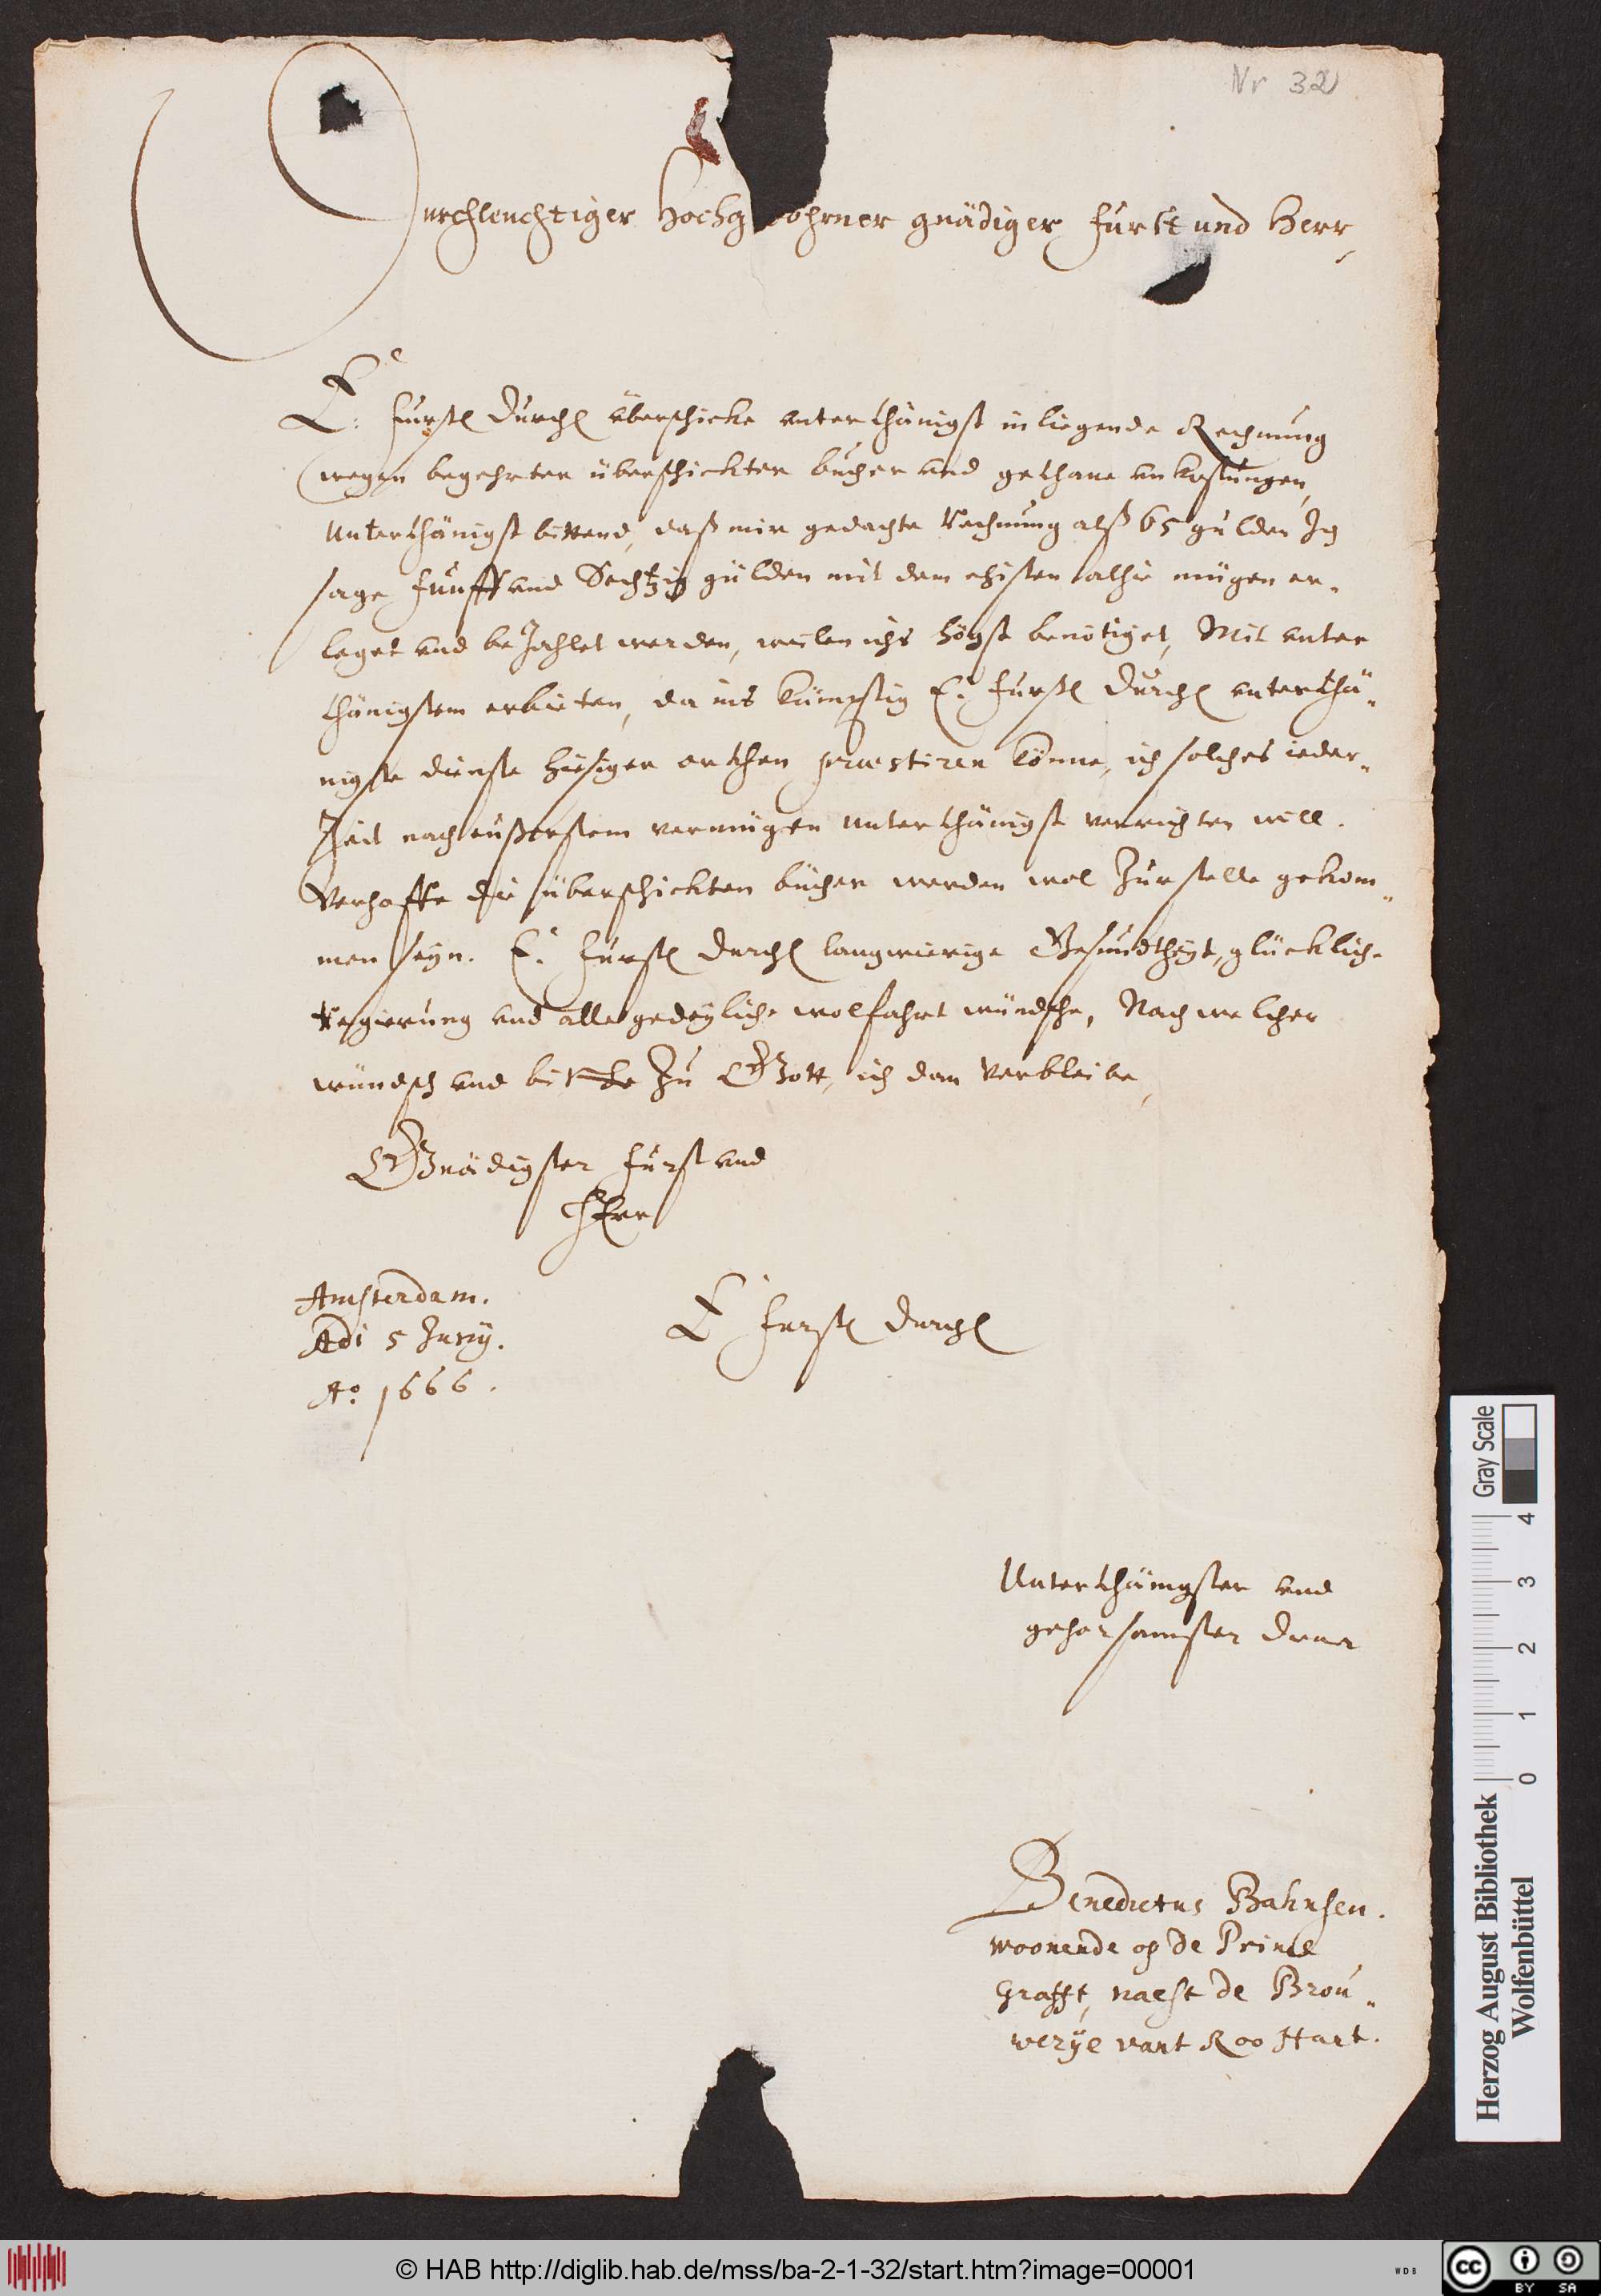 Nr 32
Durchleuchtiger Hochg ohrner gnädiger Furst und Herr,
E. Furstl Durchl überschicke unterthänigst inliegende Rechnung
wegen begehrter überschickter bücher und gethane unkostungen,
Unterthänigst bittend, daß mir gedachte Rechnung alß 65 gulden Ich
sage funff und Sechtzig gülden mit dem ehisten alhie mügen er-
leget und bezahlet werden, weilen ichs högst benötiget, Mit unter
thänigstem erbieten, da ins künfftig E. Furstl Durchl unterthä-
nigste dienste hiesiger orthen præstiren könne, ich solches ieder-
Zeit nach eußerstem vermügen unterthänigst verrichten will.
Verhoffe die überschickten bücher werden wol Zur stelle gekom-
men seyn. E. Furstl Durchl langwierige Gesundtheyt, glückliche
Regierung und alle gedeyliche wolfahrt wündsche, Nach welcher
wündsch und bitte Zu Gott, ich dan verbleibe,
Gnädigster Furst und
HErr
Amsterdam.
Adi 5 Juny.
Ao. 1666.
E Furstl Durchl
Unterthänigster und
gehorsamster Diener
Benedictus Bahnsen.
woonende op de Prince
Grafft, naest de Brou-
werye vant Roo Hart.
Gray Scale
0 1 2 3 4
Herzog August Bibliothek
Wolfenbüttel
© HAB http://diglib.hab.de/mss/ba-2-1-32/start.htm?image=00001
WDB
cc BY SA